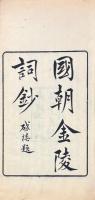 國朝金陵
詞鈔